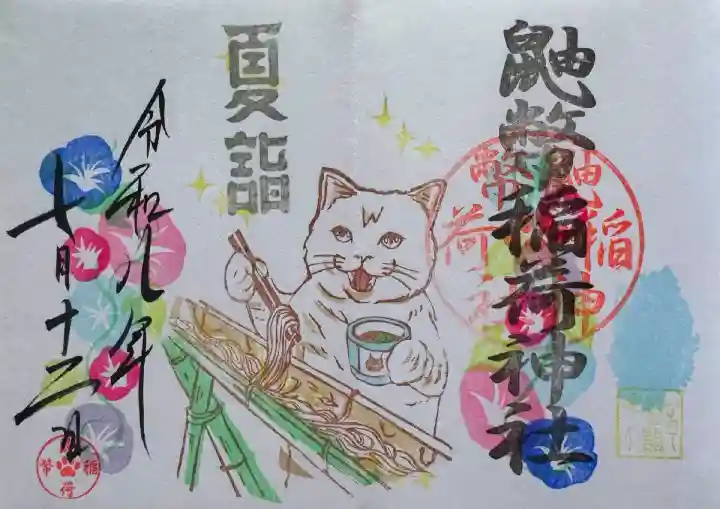 鼬幣稲荷神社
夏詣
令和九年
七月十二日
幣稲荷
W